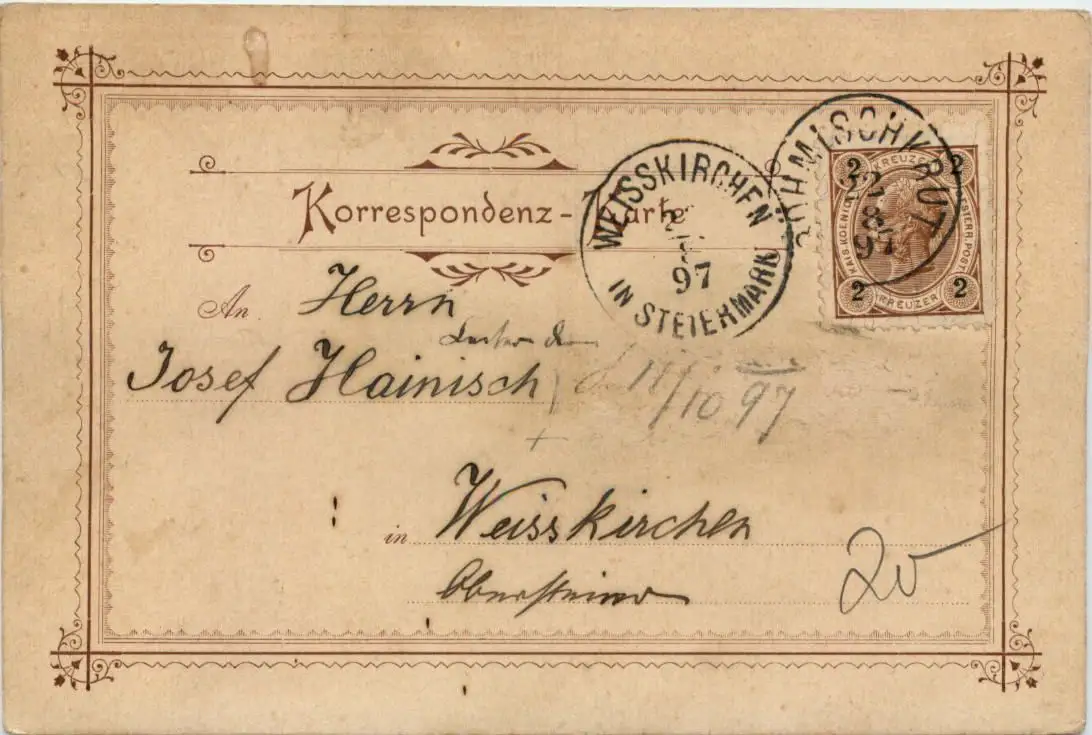 Korrespondenz-Karte
WEISSKIRCHEN
97
IN STEIERMARK
BÖHMISCHKRUT
22
8
97
2 KREUZER 2
KAIS. KOENIGL. OESTERR. POST
2 KREUZER 2
An Herrn
Josef Hainisch
11/10 97
in Weisskirchen
20